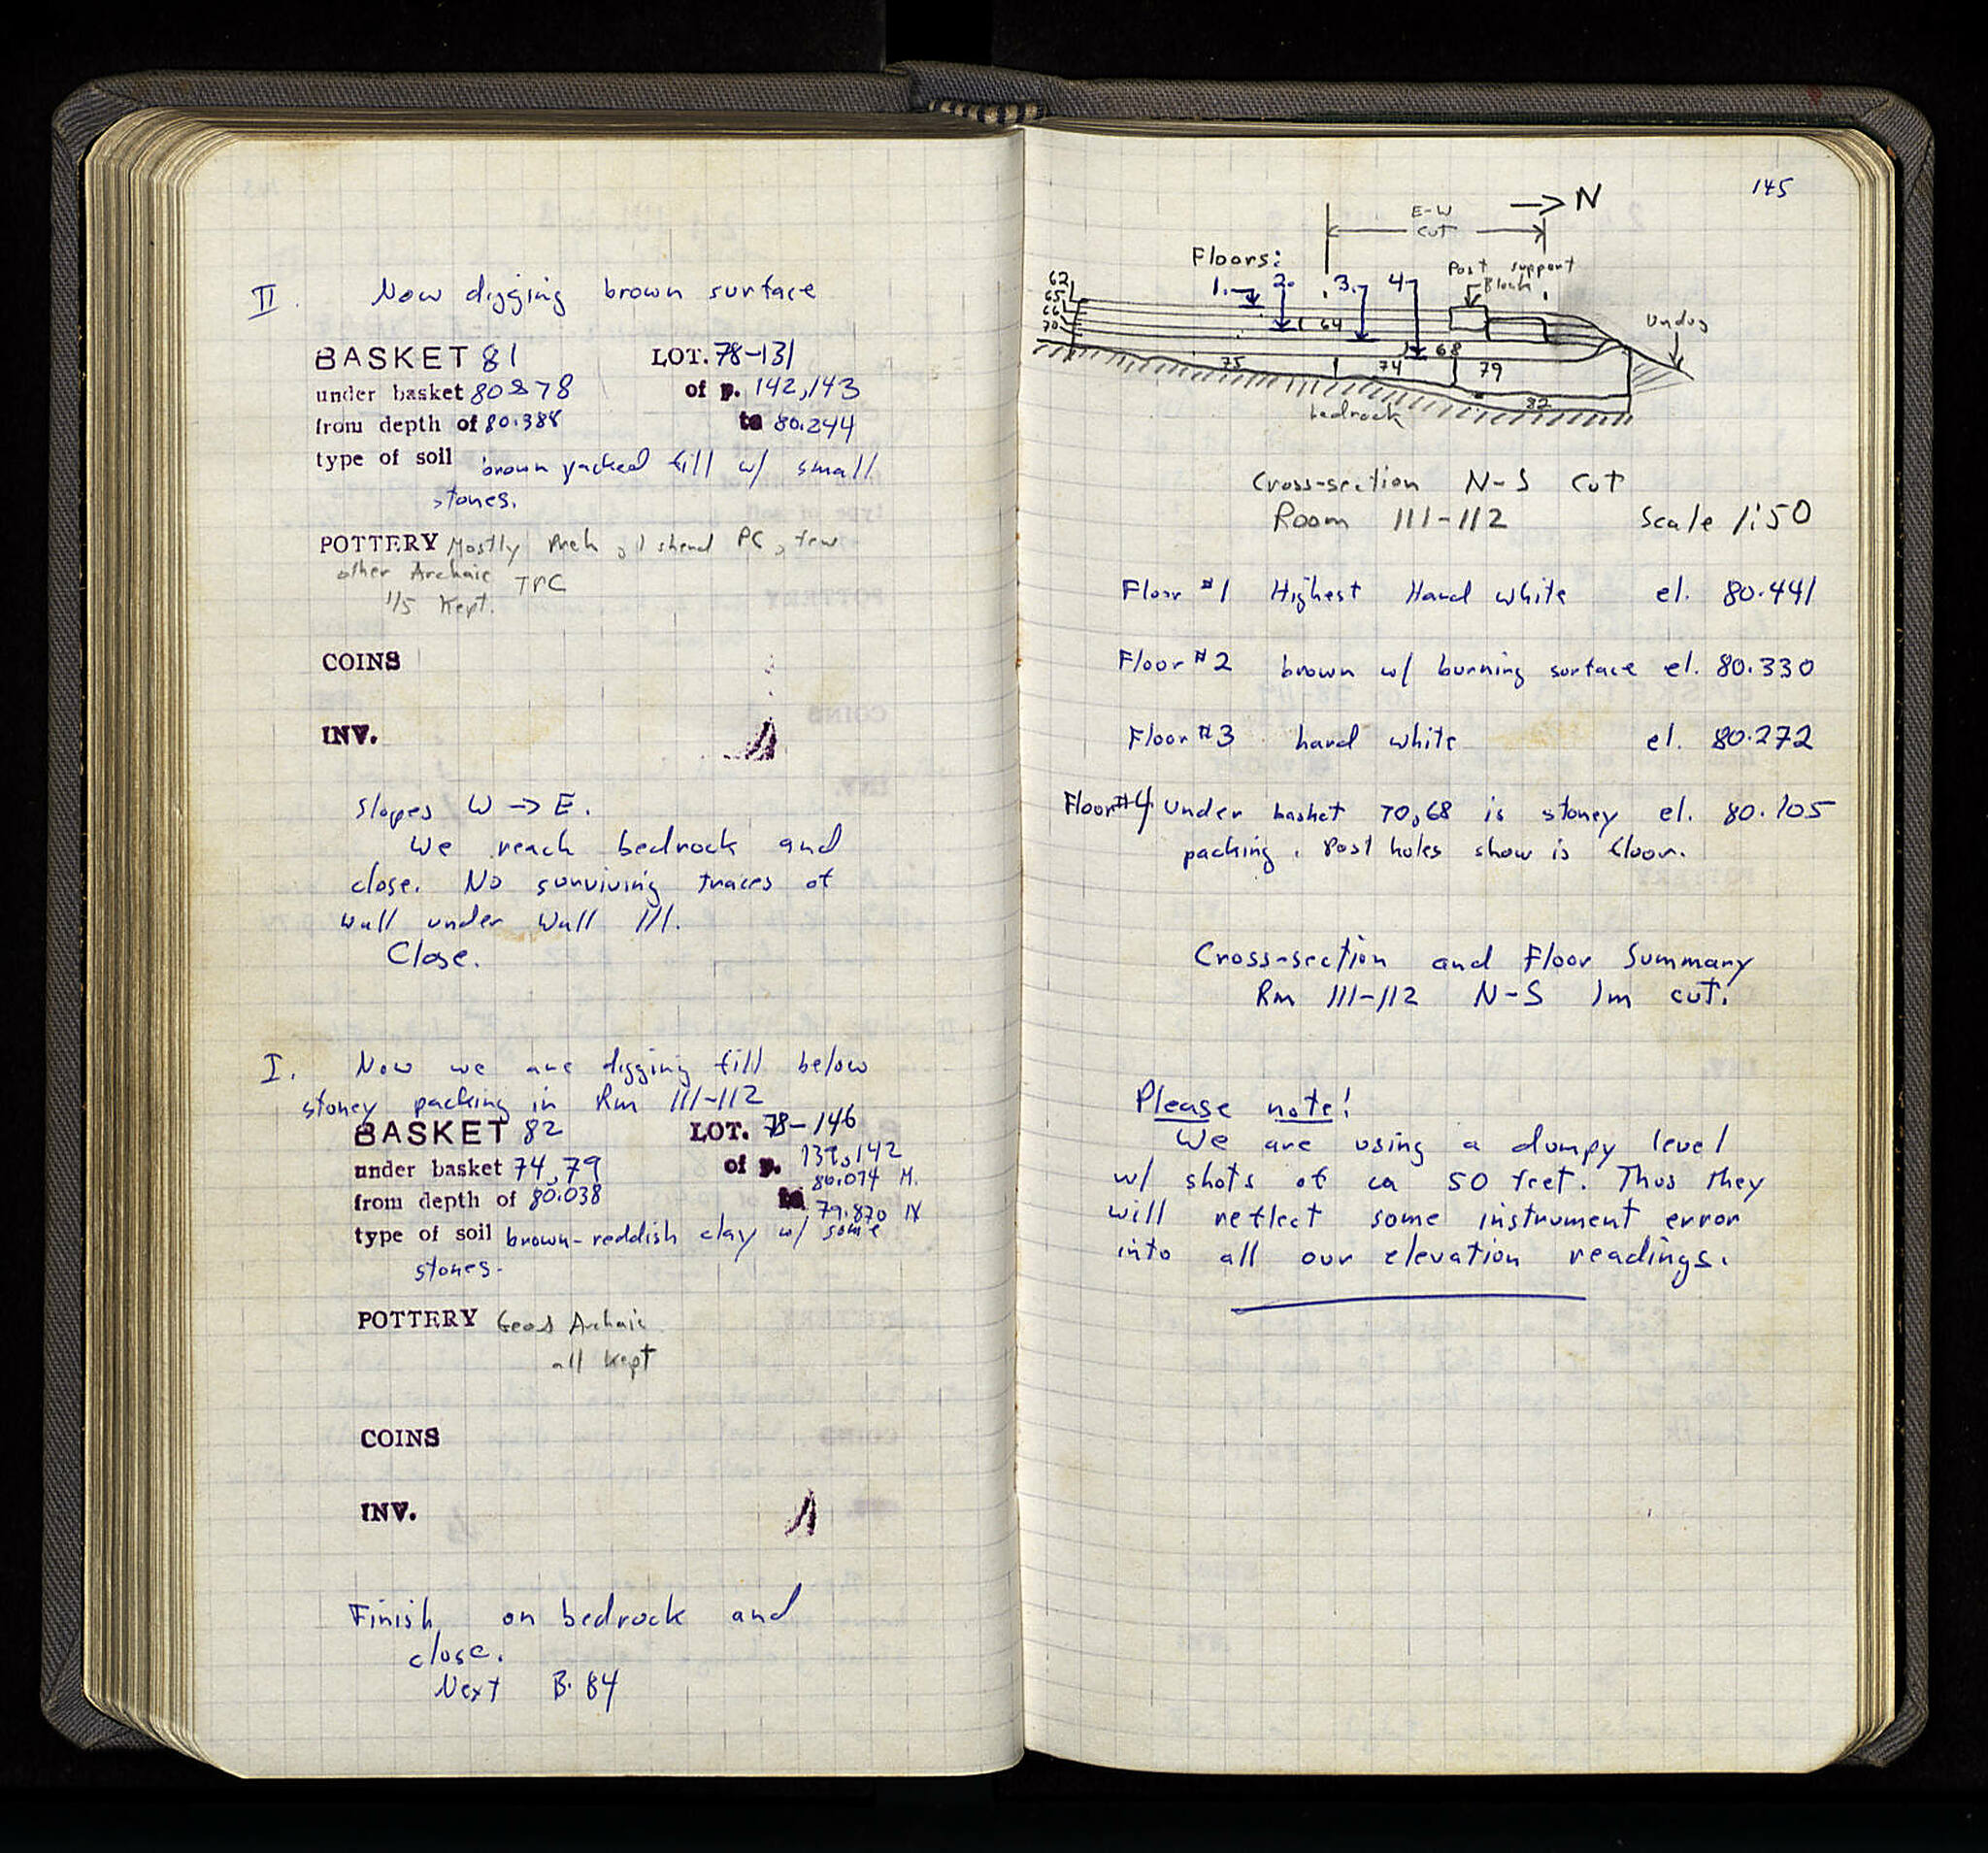 II. Now digging brown surface
BASKET 81 LOT. 78-131
under basket 80&78 of p. 142,143
from depth of 80.388 to 80.244
type of soil brown packed fill w/ small
stones.
POTTERY Mostly Preh, 1 sherd PC, few
other Archaic TPC
1/5 Kept.
COINS
INV.
Slopes W → E.
We reach bedrock and
close. No surviving traces of
wall under Wall 111.
Close.
I. Now we are digging fill below
stoney packing in Rm 111-112
BASKET 82 LOT. 78-146
under basket 74,79 of p. 139,142
from depth of 80.038 to 80.074 M.
79.870 N
type of soil brown-reddish clay w/ some
stones.
POTTERY Archaic
all kept
COINS
INV.
Finish on bedrock and
close.
Next B. 84
145
→ N
E-W
cut
Floors:
1. 2. 3. 4.
Post support
Block
62
65
66
70
64
68
75
74
79
82
undug
bedrock
Cross-section N-S cut
Room 111-112 Scale 1:50
Floor #1 Highest Hard white el. 80.441
Floor #2 brown w/ burning surface el. 80.330
Floor #3 hard white el. 80.272
Floor #4 Under basket 70,68 is stoney el. 80.105
packing. Post holes show is floor.
Cross-section and Floor Summary
Rm 111-112 N-S 1m cut.
Please note!
We are using a dumpy level
w/ shots of ca 50 feet. Thus they
will reflect some instrument error
into all our elevation readings.